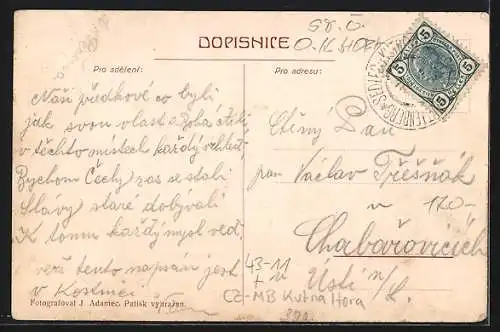 DOPISNICE
Pro sdělení:
Naší předkové co byli
jak svou vlast a Boha ctili
v těchto místech každý vhled,
Bychom Čechy zas se stali
Slávy staré dobývali
K tomu každý mysl veď,
verš tento napsán jest
v Kostnici
Fotografoval J. Adamec. Patisk vyhražen.
Pro adresu:
Ctěný Pan
pan Václav Třešňák
v
Chabařovicích
Ústí n/L.
43-11
CZ-MB Kutna Hora
5 5 5 5